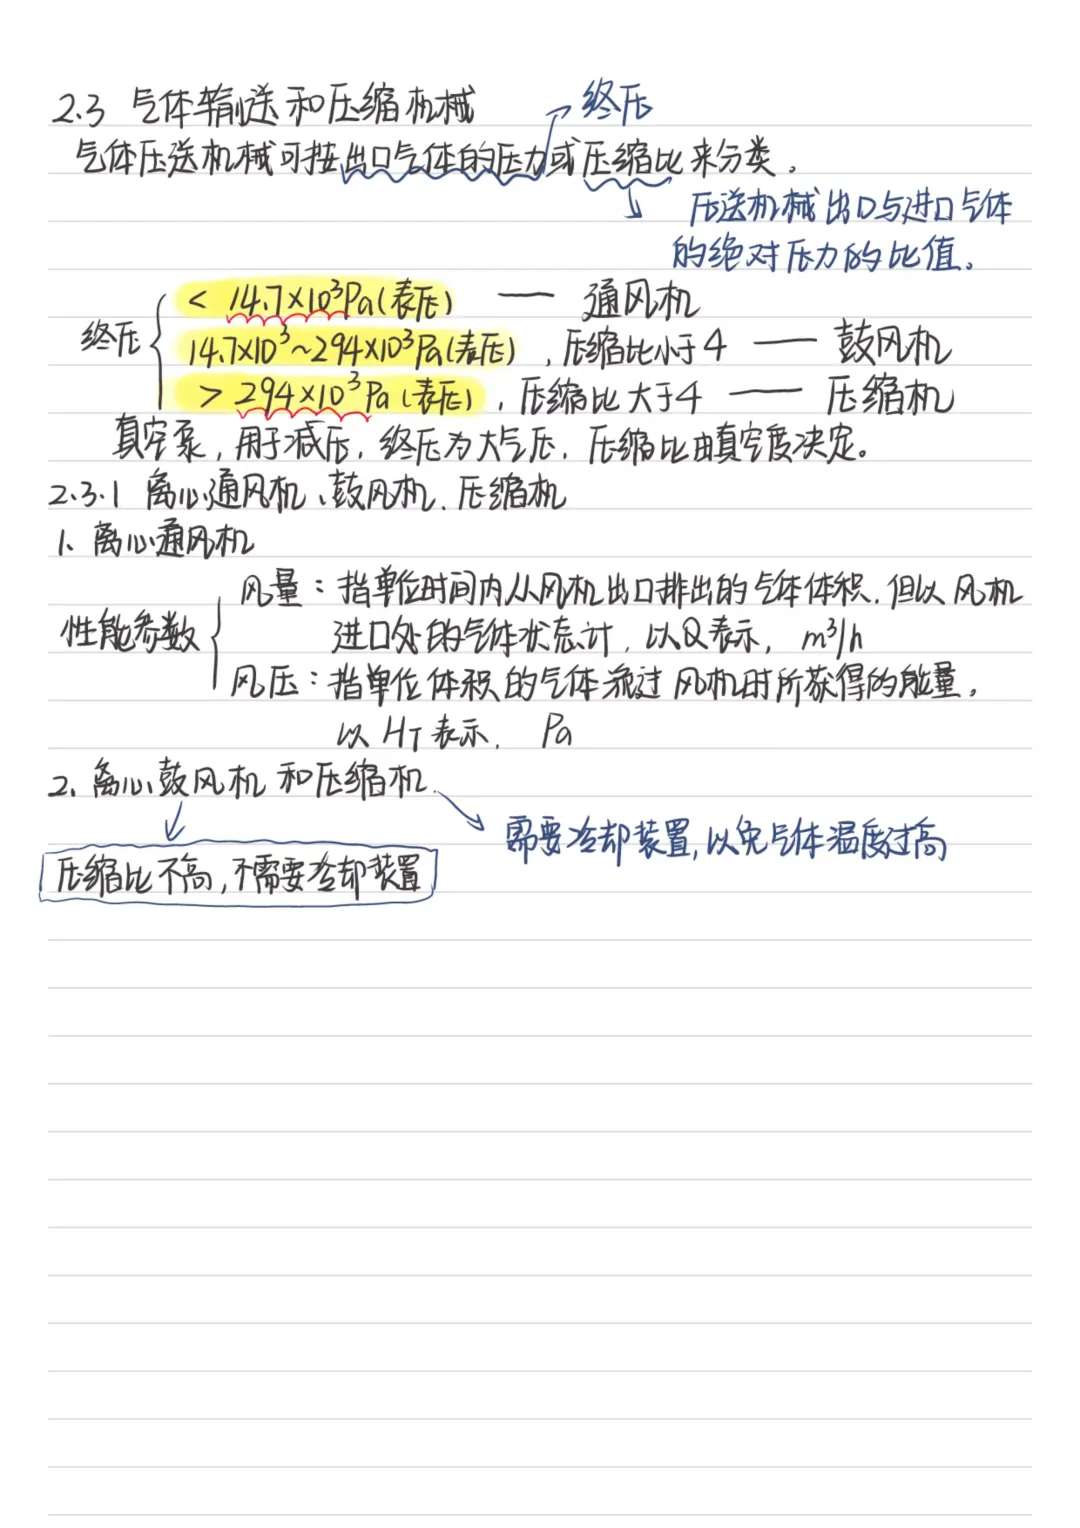 2.3 气体输送和压缩机械
终压
气体压送机械可按出口气体的压力或压缩比来分类。
压送机械出口与进口气体
的绝对压力的比值。
终压
< 14.7×10³Pa(表压) — 通风机
14.7×10³~294×10³Pa(表压),压缩比小于4 — 鼓风机
> 294×10³Pa(表压),压缩比大于4 — 压缩机
真空泵,用于减压,终压为大气压,压缩比由真空度决定。
2.3.1 离心通风机、鼓风机、压缩机
1、离心通风机
性能参数
风量:指单位时间内从风机出口排出的气体体积,但以风机
进口处的气体状态计,以Q表示, m³/h
风压:指单位体积的气体流过风机时所获得的能量,
以 H_T 表示, Pa
2、离心鼓风机和压缩机
需要冷却装置,以免气体温度过高
压缩比不高,不需要冷却装置